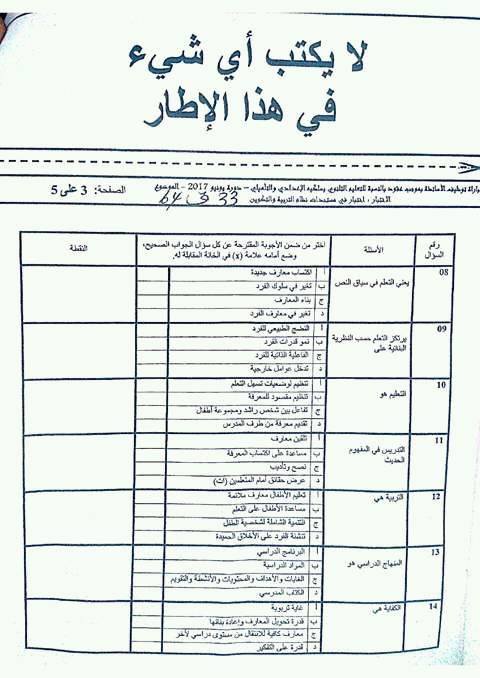 لا يكتب أي شيء
في هذا الإطار
مباراة توظيف الأساتذة بموجب عقود بالنسبة للتعليم الثانوي بسلكيه الإعدادي والتأهيلي – دورة يونيو 2017 – الموضوع
الصفحة: 3 على 5
الاختبار: اختبار في مستجدات نظام التربية والتكوين
رقم السؤال
الأسئلة
اختر من ضمن الأجوبة المقترحة عن كل سؤال الجواب الصحيح،
وضع أمامه علامة (x) في الخانة المقابلة له.
النقطة
08
يعني التعلم في سياق النص
أ اكتساب معارف جديدة
ب تغير في سلوك الفرد
ج بناء المعارف
د تغير في معارف الفرد
09
يرتكز التعلم حسب النظرية
البنائية على
أ النضج الطبيعي للفرد
ب نمو قدرات الفرد
ج الفاعلية الذاتية للفرد
د تدخل عوامل خارجية
10
التعليم هو
أ تنظيم لوضعيات تسهل التعلم
ب تنظيم مقصود للمعرفة
ج تفاعل بين شخص راشد ومجموعة أطفال
د تقديم معرفة من طرف المدرس
11
التدريس في المفهوم
الحديث
أ تلقين معارف
ب مساعدة على اكتساب المعرفة
ج نصح وتأديب
د عرض حقائق أمام المتعلمين (ات)
12
التربية هي
أ تعليم الأطفال معارف ملائمة
ب مساعدة الأطفال على التعلم
ج التنمية الشاملة لشخصية الطفل
د تنشئة الفرد على الأخلاق الحميدة
13
المنهاج الدراسي هو
أ البرنامج الدراسي
ب المواد الدراسية
ج الغايات والأهداف والمحتويات والأنشطة والتقويم
د الكتاب المدرسي
14
الكفاية هي
أ غاية تربوية
ب قدرة تحويل المعارف وإعادة بنائها
ج معارف كافية للانتقال من مستوى دراسي لآخر
د قدرة على التفكير